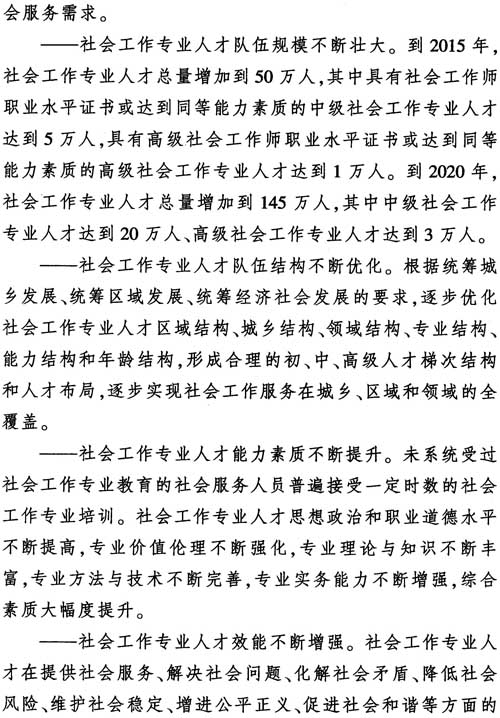 会服务需求。
——社会工作专业人才队伍规模不断壮大。到 2015 年,
社会工作专业人才总量增加到 50 万人,其中具有社会工作师
职业水平证书或达到同等能力素质的中级社会工作专业人才
达到 5 万人,具有高级社会工作师职业水平证书或达到同等
能力素质的高级社会工作专业人才达到 1 万人。到 2020 年,
社会工作专业人才总量增加到 145 万人,其中中级社会工作
专业人才达到 20 万人、高级社会工作专业人才达到 3 万人。
——社会工作专业人才队伍结构不断优化。根据统筹城
乡发展、统筹区域发展、统筹经济社会发展的要求,逐步优化
社会工作专业人才区域结构、城乡结构、领域结构、专业结构、
能力结构和年龄结构,形成合理的初、中、高级人才梯次结构
和人才布局,逐步实现社会工作服务在城乡、区域和领域的全
覆盖。
——社会工作专业人才能力素质不断提升。未系统受过
社会工作专业教育的社会服务人员普遍接受一定时数的社会
工作专业培训。社会工作专业人才思想政治和职业道德水平
不断提高,专业价值伦理不断强化,专业理论与知识不断丰
富,专业方法与技术不断完善,专业实务能力不断增强,综合
素质大幅度提升。
——社会工作专业人才效能不断增强。社会工作专业人
才在提供社会服务、解决社会问题、化解社会矛盾、降低社会
风险、维护社会稳定、增进公平正义、促进社会和谐等方面的